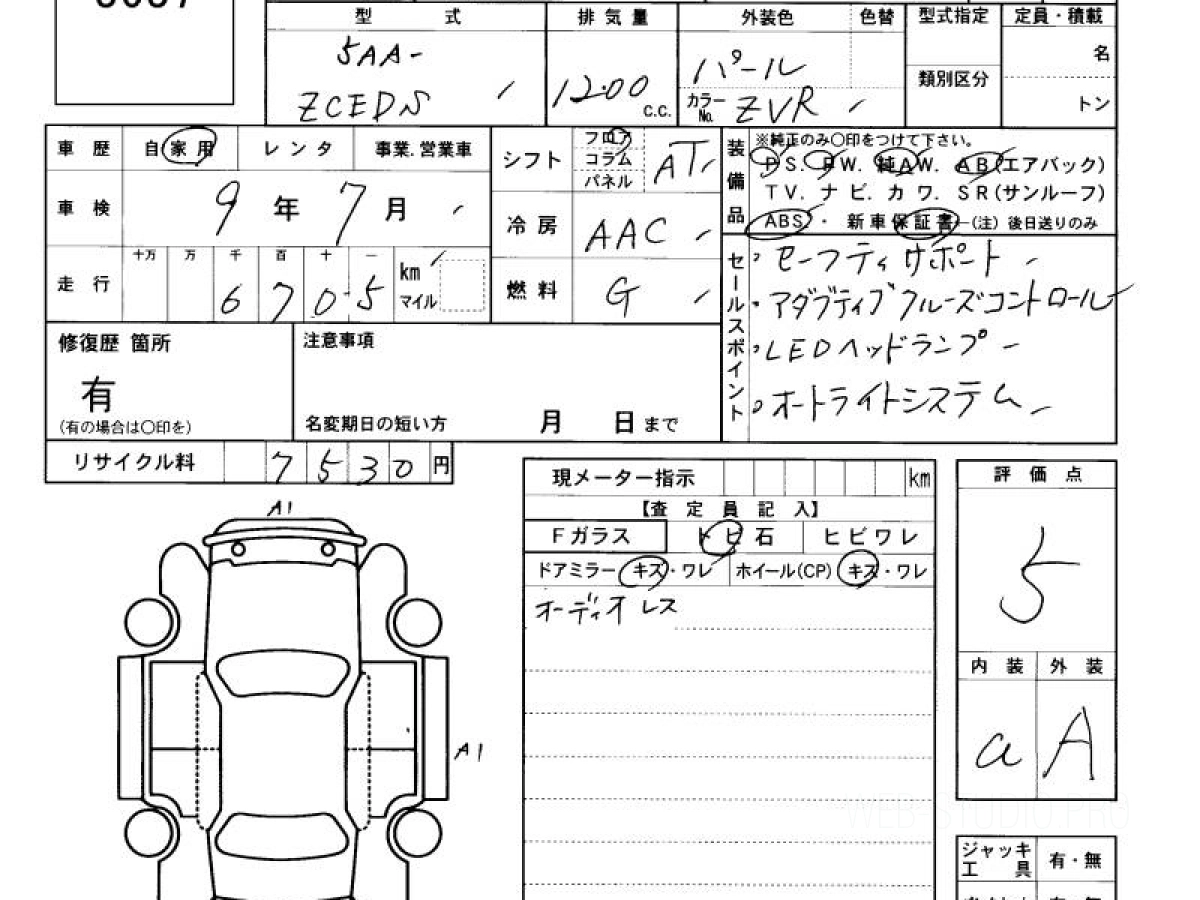 型 式
排 気 量
外装色
色替
型式指定
定員・積載
5AA-
ZCEDS
1200
c.c.
パール
カラーNo. ZVR
類別区分
名
トン
車 歴
自家用
レ ン タ
事業.営業車
車 検
9 年 7 月
走 行
十万 万 千 百 十 一
6 7 0 5
km
マイル
シフト
フロア
コラム
パネル
AT
冷 房
AAC
燃 料
G
装備品
※純正のみ〇印をつけて下さい。
P S. P W. 純A W. A B(エアバック)
T V. ナ ビ. カ ワ. S R(サンルーフ)
ABS ・ 新 車 保 証 書 ←(注) 後日送りのみ
セールスポイント
セーフティサポート
アダプティブクルーズコントロール
LEDヘッドランプ
オートライトシステム
修復歴 箇所
有
(有の場合は〇印を)
注意事項
名変期日の短い方 月 日 まで
リサイクル料
7 5 3 0 円
現メーター指示
km
【査 定 員 記 入】
F ガラス
ト ビ 石
ヒ ビ ワ レ
ドアミラー キズ・ワレ
ホイール(CP) キズ・ワレ
オーディオ レス
評 価 点
5
内 装
外 装
a
A
A1
A1
WEB-STUDIO.PRO
ジャッキ
工 具
有・無